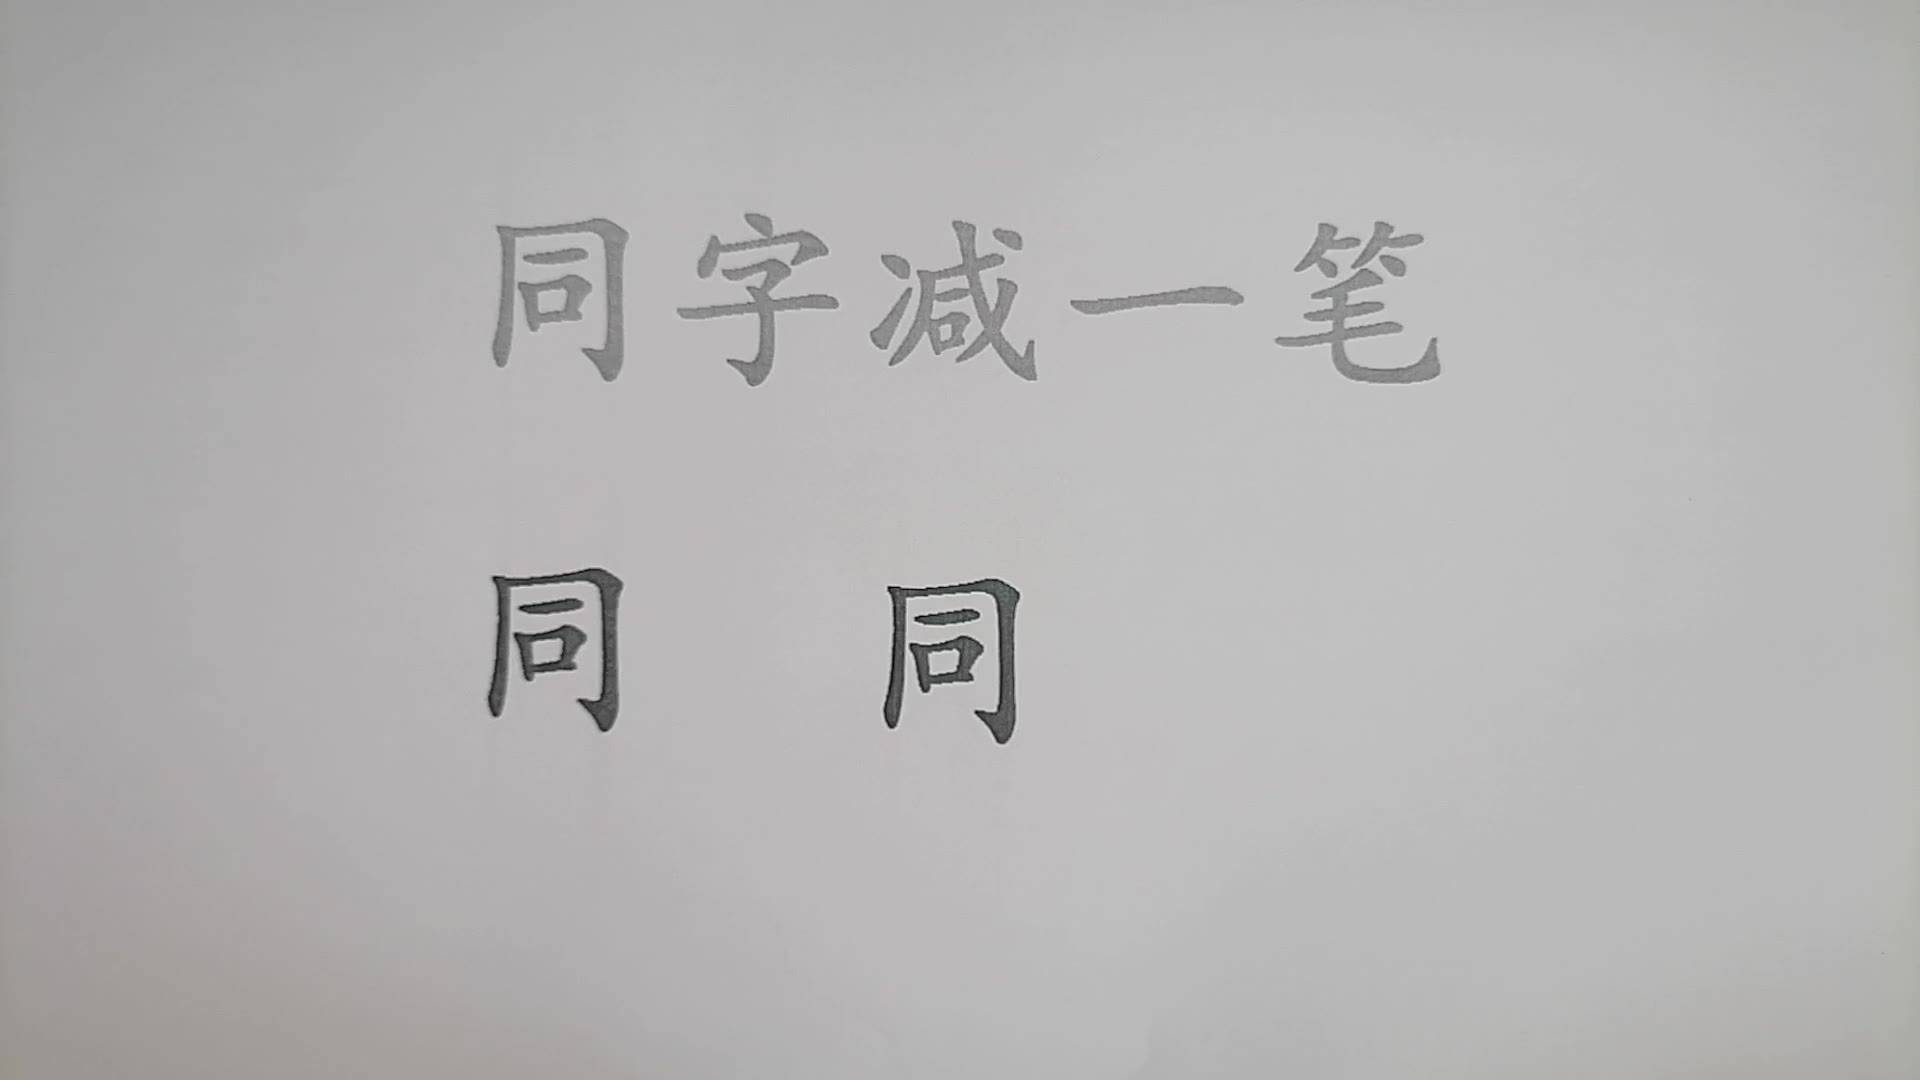 同字减一笔
同 同